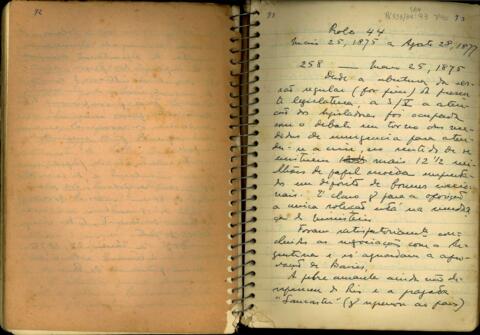 72
73
73
Rolo 44
Maio 25, 1875 a Agosto 28, 1877
258 — Maio 25, 1875
Desde a abertura da ses-
são regular (por fim) da presen-
te legislatura, a 3/V a aten-
ção dos legisladores foi ocupada
com o debate em torno das me-
didas de emergencia para aten-
der a crise, no sentido de se
emitirem mais 12 1/2 mi-
lhões de papel moeda
em deposito de bonus nacio-
nais. É claro q para a oposição
a unica solução está na mudan-
ça de ministerio.
Foram satisfatoriamente con-
cluidas as negociações com a Ar-
gentina e só aguardam a apro-
vação de Buenos Aires.
A febre amarela ainda não de-
sapareceu do Rio e a fragata
"Lancaster" (q regressa ao país)